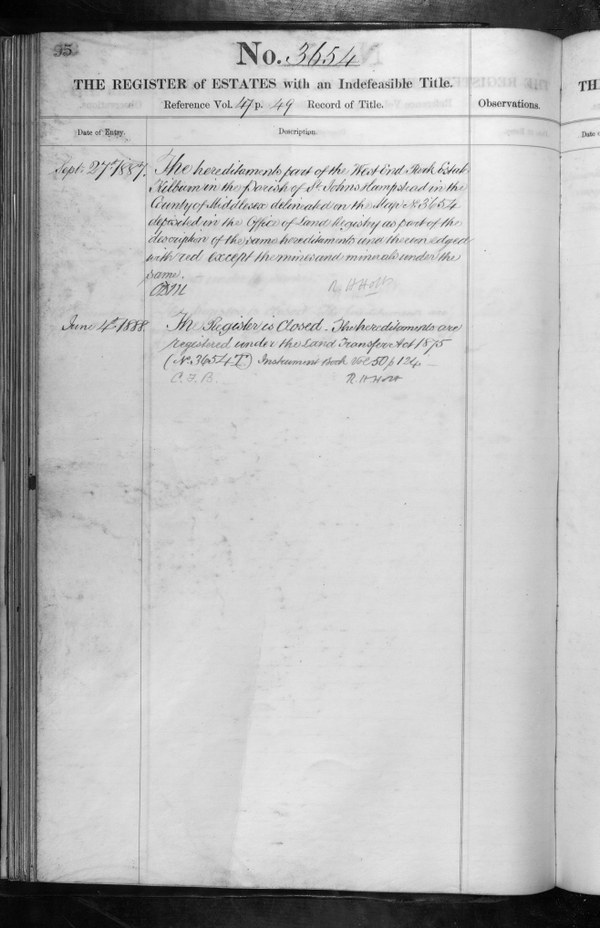 95
No. 3654
THE REGISTER of ESTATES with an Indefeasible Title.
Reference Vol. 47 p. 49 Record of Title.
Observations.
Date of Entry.
Description.
Sept. 27th 1887.
The hereditaments part of the West End Park Estate
Kilburn in the Parish of St Johns Hampstead in the
County of Middlesex delineated on the Map No 3654
deposited in the Office of Land Registry as part of the
description of the same hereditaments and thereon edged
with red except the mines and minerals under the
same.
R H Holt
June 4th 1888.
The Register is Closed - The hereditaments are
registered under the Land Transfer Act 1875
(No 3654 T.) Instrument Book Vol 50 p 124.
C. F. B.
R H Holt
TH
Date o